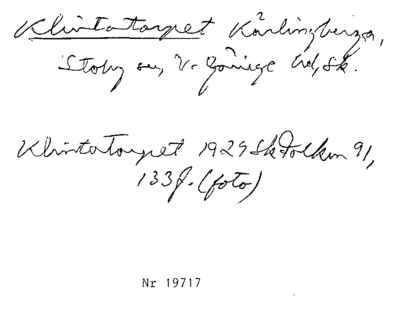 Klintatorpet Kärlingberga,
Stoby sn, V. Göinge hd, Sk.
Klintatorpet 1929 Sk Folkm 91,
133f. (foto)
Nr 19717